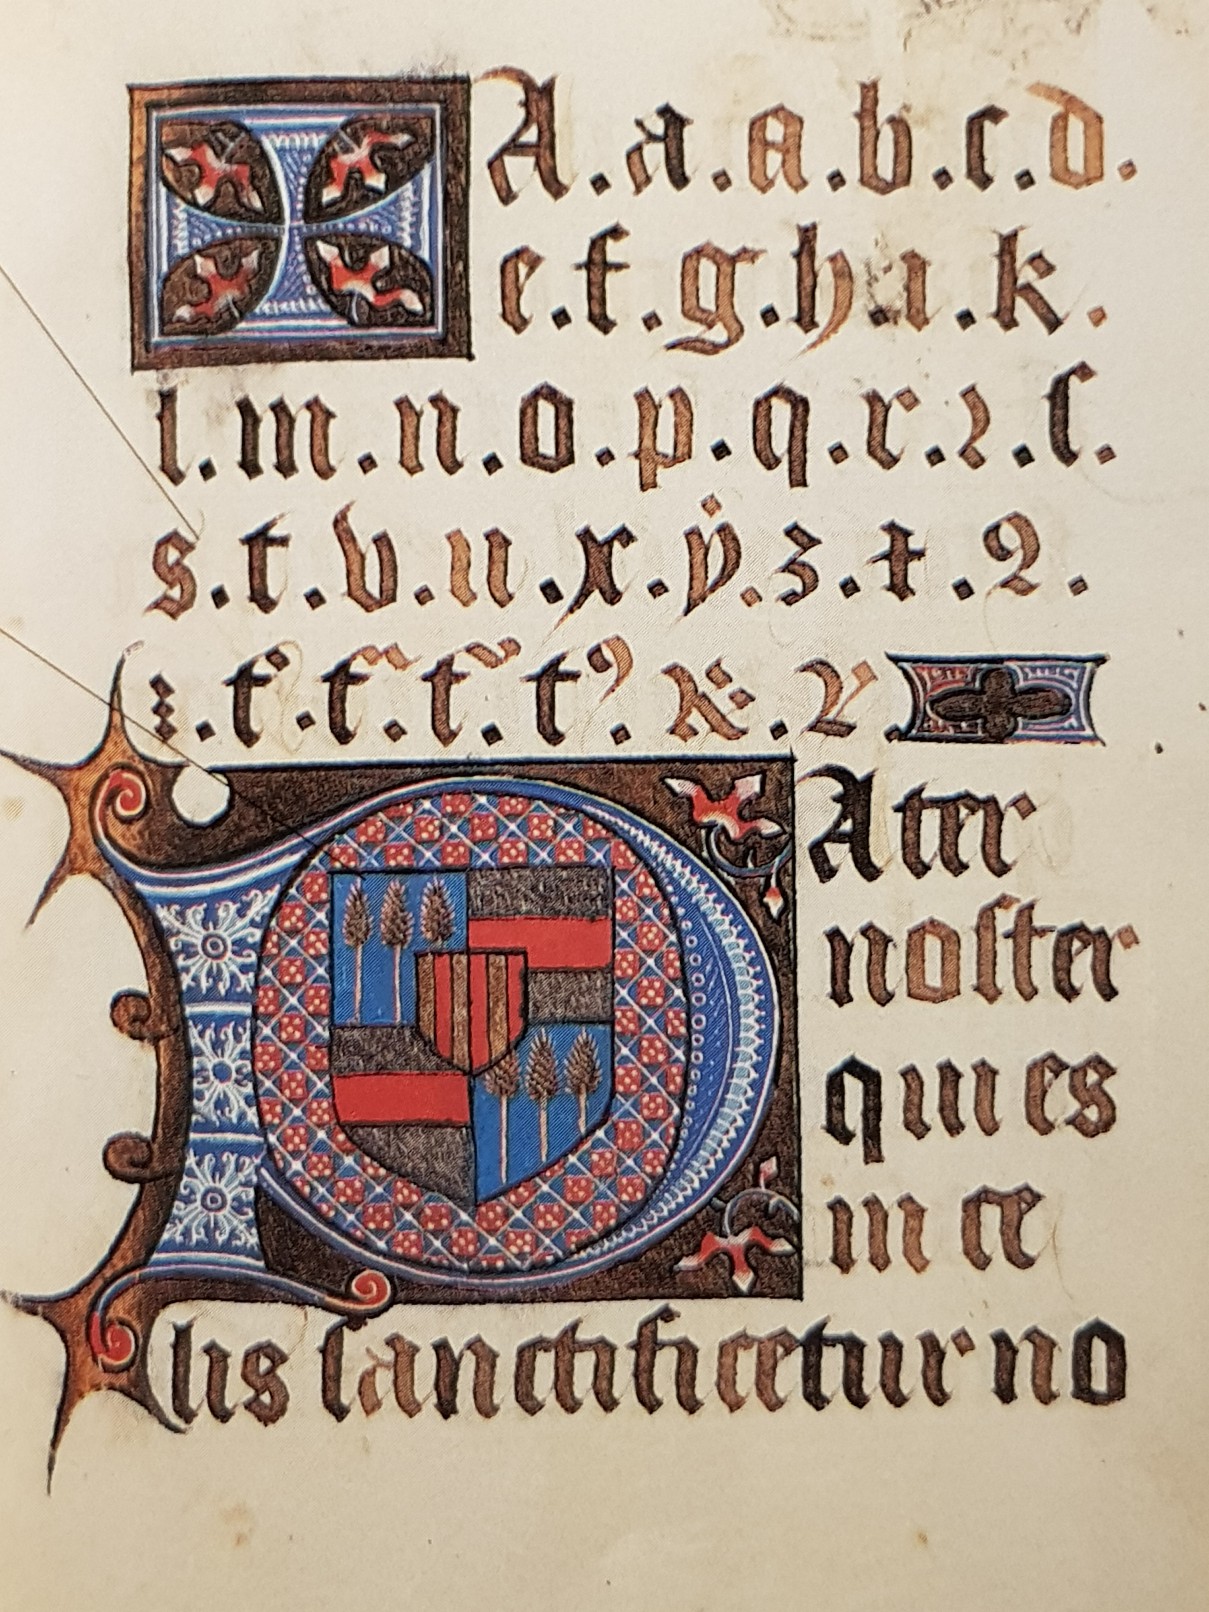 A.a.a.b.c.d.
e.f.g.h.ı.k.
l.m.n.o.p.q.r.ꝛ.ſ.
s.t.v.u.x.ẏ.z.
Pater
noſter
qui es
in ce
lis ſanctificetur no